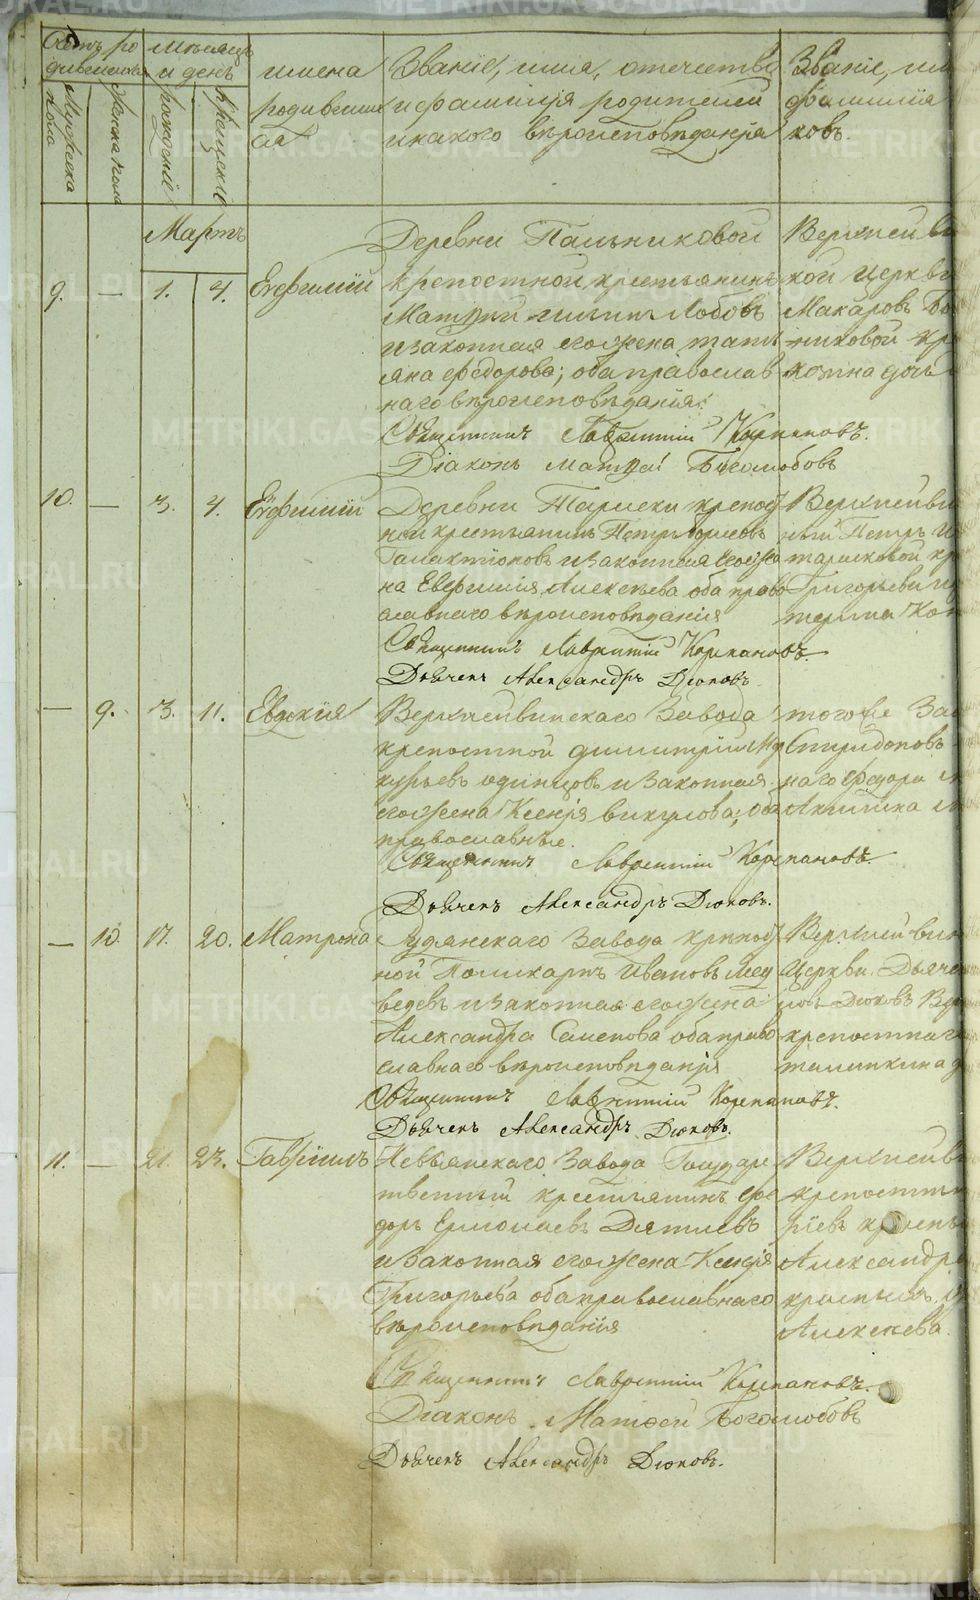 Счетъ ро
дившихся
Мужеска
пола
Женска пола
Мѣсяцъ
и день
рожденія
крещенія
имена
родивших
ся
Званіе, имя, отечество
и фамилія родителей
и какого вѣроисповѣданія
Званіе, им
фамилия
ковъ.
Мартъ
9. — 1. 4. Евфимій
Деревни Пальниковой
крепостной крестьянинъ
Матѳий Лобовъ
и законная его жена татї
яна федорова; оба православ
наго вѣроисповѣданія.
Священникъ Лаврентій Корепановъ.
Діаконъ матѳей Боголюбовъ
Верхнейви
кой церкви
Макаровъ Бо
никовой кр
10. — 3. 4. Евфимій
Деревни Тариски крепост
ной крестьянинъ Петръ
Галактіоновъ и законная его же
на Евфимия Алексѣева оба право
славнаго вѣроисповѣданія
Священникъ Лаврентій Корепановъ.
Дьячекъ Александръ Дюковъ.
Верхнейви
ный Петръ
Григорьеви
— 9. 3. 11. Евдокія
Верхнейвинскаго Завода
крепостной димитрій
одинцовъ и законная
его жена Ксенія викулова, оба
православные.
Священникъ Лаврентій Корепановъ
Дьячекъ Александръ Дюковъ.
того же Зав
Спиридоновъ
наго Федора
— 10. 17. 20. Матрона
Рудянскаго Завода крѣпост
ной Поликарпъ Ивановъ Мед
ведевъ и законная его жена
Александра Семенова оба право
славнаго вѣроисповѣданія
Священникъ Лаврентій Корепановъ.
Дьячекъ Александръ Дюковъ.
Верхнейвин
Церкви Дьяче
Дюковъ Вер
крепостнаг
11. — 21. 23. Гавріилъ
Невьянскаго Завода Государс
твенный крестьянинъ Фео
доръ Ермолаевъ Дятлевъ
и законная его жена Ксенія
Григорьева оба православнаго
вѣроисповѣданія
Священникъ Лаврентій Корепановъ.
Діаконъ Матѳей Боголюбовъ
Дьячекъ Александръ Дюковъ.
Верхнейв
крепостны
Александр
Алексеева.
METRIKI.GASO-URAL.RU